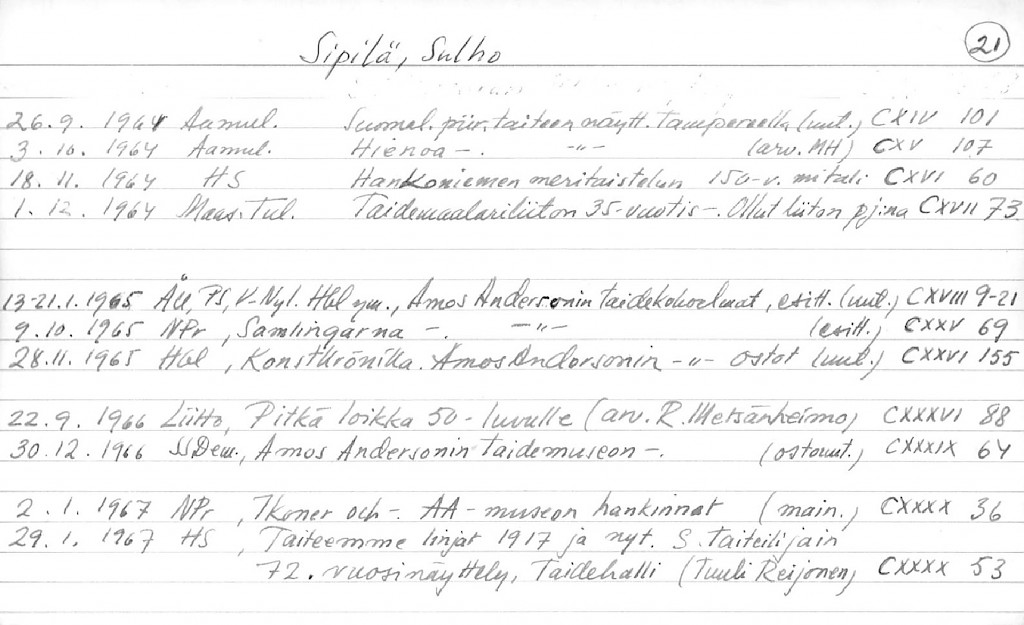 21
Sipilä, Sulho
26.9. 1964 Aamul. Suomal. piir. taiteen näytt. Tampereella (uut.) CXIV 101
3.10. 1964 Aamul. Hienoa -. -"- (arv. MH) CXV 107
18.11. 1964 HS Hankoniemen meritaistelun 150-v. mitali CXVI 60
1.12. 1964 Maas. Tul. Taidemaalariliiton 35-vuotis-. Ollut liiton pj:na CXVII 73
13-21.1.1965 ÅU, PS, V-Nyl. Hbl ym., Amos Andersonin taidekokoelmat, esitt. (uut.) CXVIII 9-21
9.10. 1965 NPr, Samlingarna -. -"- (esitt.) CXXV 69
28.11. 1965 Hbl, Konstkrönika. Amos Andersonin -"- ostot (uut.) CXXVI 155
22.9. 1966 Liitto, Pitkä loikka 50-luvulle (arv. R. Metsänheimo) CXXXVI 88
30.12. 1966 SSDem., Amos Andersonin taidemuseon -. (ostouut.) CXXXIX 64
2.1. 1967 NPr, Ikoner och -. AA-museon hankinnat (main.) CXXXX 36
29.1. 1967 HS, Taiteemme linjat 1917 ja nyt. S. Taiteilijain
72. vuosinäyttely, Taidehalli (Tuuli Reijonen) CXXXX 53